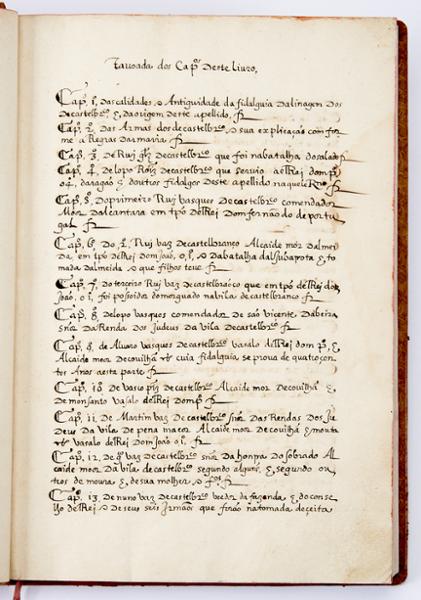 Tavoada dos Capᵒˢ Deste livro,
Capᵒ. 1, das calidades, e Antiguidade da fidalguia Dalinagen Dos
Decastelbrᶜᵒ, &, da origem deste apellido,
Capᵒ. 2, das Armas dos decastelbrᶜᵒ, e sua explicação com for
me a Regras Darmaria
Capᵒ. 3, de Ruj decastelbrᶜᵒ que foi nabatalha dosalado
Capᵒ. 4, de lopo Decastelbrᶜᵒ que servio aelRei
daragão & doutros fidalgos Deste apellido naquele Rnᵒ
Capᵒ. 5, Do primeiro Ruj vasques Decastelbrᶜᵒ comendador
Mor Dalcantara em tpõ delRei Domfernãodo de portu
gal
Capᵒ. 6, Do, 2, Ruj vaz Decastelbranço Alcaide mor dalmei
da, em tpõ delRei dom João, o, 1, e Dabatalha daljubarota, & to
mada Dalmeida e que filhos teve
Capᵒ. 7, do terceiro Ruj vaz Decastelbrãco que em tpõ delRei dõ
João, o 1, foi possuidor domorguado navila de castelbranco
Capᵒ. 8, de lopo vasques comendador de são vicente Dabeira
snõr Da Renda dos Judeus Da vila Decastelbrᶜᵒ
Capᵒ. 9, de Alvaro vasques Decastelbrᶜᵒ vasalo delRei dom &
Alcaide mor Decouilhã cuia fidalguia se prova de quatroçen
tos Anos aesta parte
Capᵒ. 10 de vasco Decastelbrᶜᵒ Alcaide Mor Decouilhã &
De monsanto vasalo delRei
Capᵒ. 11 de Martim vaz De castelbrᶜᵒ snõr Das Rendas Dos Ju
Deus Da vila De pena macor Alcaide mor De couilhã &
vasalo delRei Dom João o, 1,
Capᵒ. 12, de vaz decastelbrᶜᵒ snõr da honra do sobrado Al
caide mõr Da vila decastelbrᶜᵒ segundo alguns, &, segundo ou
tros de moura &, de sua molher, e
Capᵒ. 13, de nuno vaz Decastelbrᶜᵒ veedor da fazenda, & do conse
lho delRei e De seus seis Irmãos que forão natomada deçeita